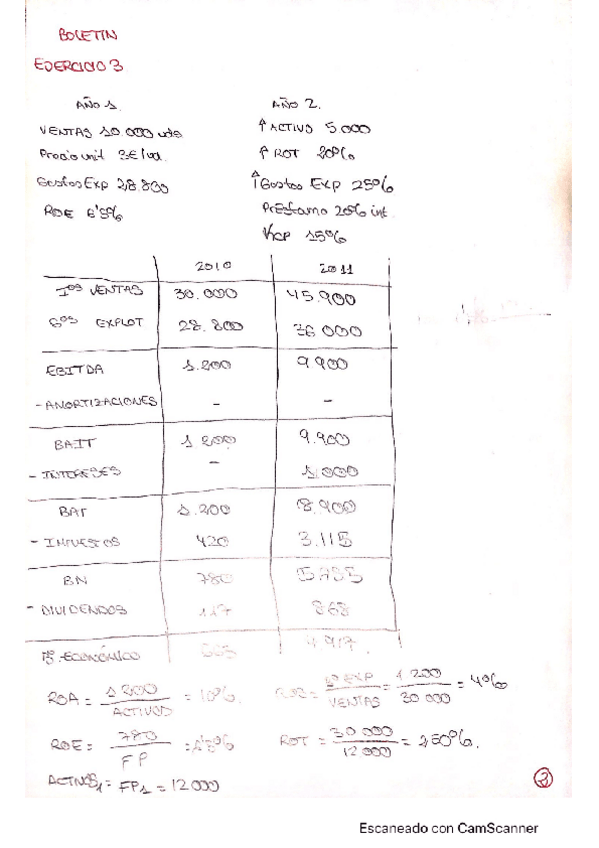 BOLETIN
EJERCICIO 3
AÑO 1. AÑO 2.
VENTAS 10.000 uds ↑ ACTIVO 5 000
Precio unit 3€/ud. ↑ ROT 20%
Gastos Exp 28.800 ↑ Gastos Exp 25%
ROE 6'5% Préstamo 20% int.
KCP 15%
2010 2011
Iºs VENTAS 30.000 45.900
Gºs EXPLOT 28.800 36 000
EBITDA 1.200 9 900
- AMORTIZACIONES - -
BAIT 1 200 9.900
- INTERESES - 1.000
BAT 1.200 8.900
- IMPUESTOS 420 3.115
BN 780 5.785
- DIVIDENDOS 117 868
ECONÓMICO 663 4 917
ROA = 1 200 / ACTIVOS = 10%. = Bº EXP / VENTAS = 1 200 / 30 000 = 4%
ROE = 780 / FP = ROT = 30 000 / 12 000 = 250%.
ACTIVOS1 = FP1 = 12 000
3
Escaneado con CamScanner